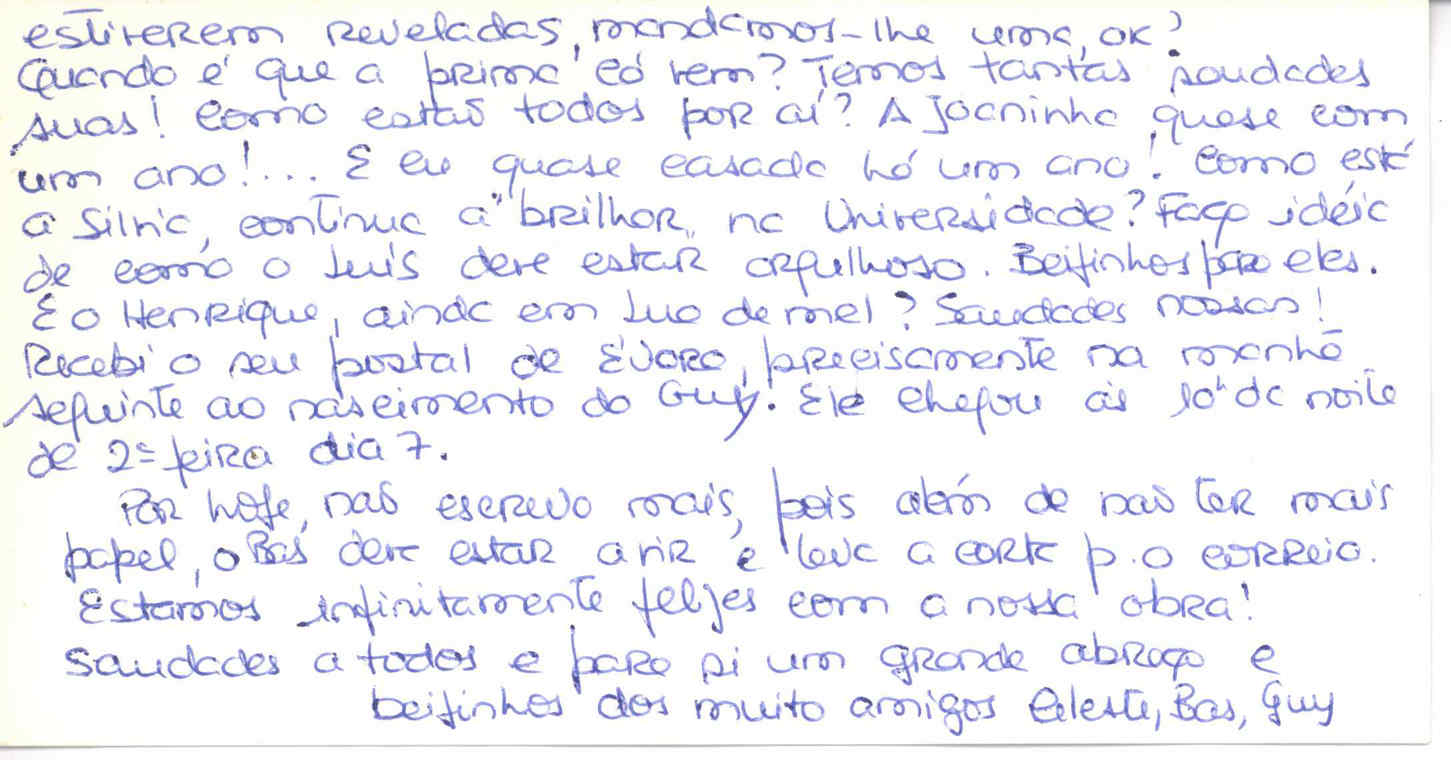 estiverem reveladas, mandamos-lhe uma, ok?
Quando é que a prima cá vem? Temos tantas saudades
suas! Como estão todos por aí? A Joaninha quase com
um ano!... E eu quase casada há um ano! Como está
a Silvia, continua a "brilhar" na Universidade? Faço idéia
de como o Luís deve estar orgulhoso. Beijinhos para eles.
E o Henrique, ainda em Lua de mel? Saudades nossas!
Recebi o seu postal de Évora, precisamente na manhã
seguinte ao nascimento do Guy. Ele chegou às 10h da noite
de 2ª feira dia 7.
Por hoje, não escrevo mais, pois além de não ter mais
papel, o Bas deve estar a vir e leva a carta p. o correio.
Estamos infinitamente felizes com a nossa obra!
Saudades a todos e para si um grande abraço e
beijinhos dos muito amigos Celeste, Bas, Guy